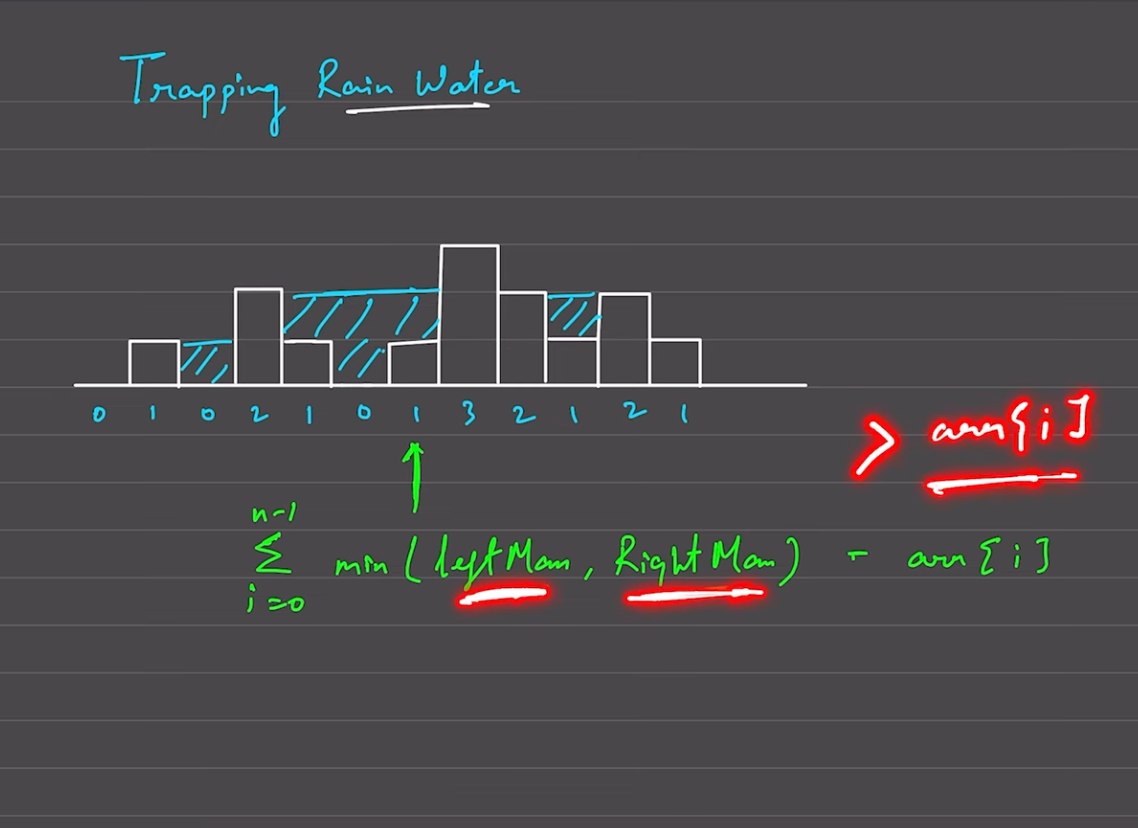 Trapping Rain Water
0 1 0 2 1 0 1 3 2 1 2 1
> arr[i]
n-1
Σ min(leftMax, RightMax) - arr[i]
i=0